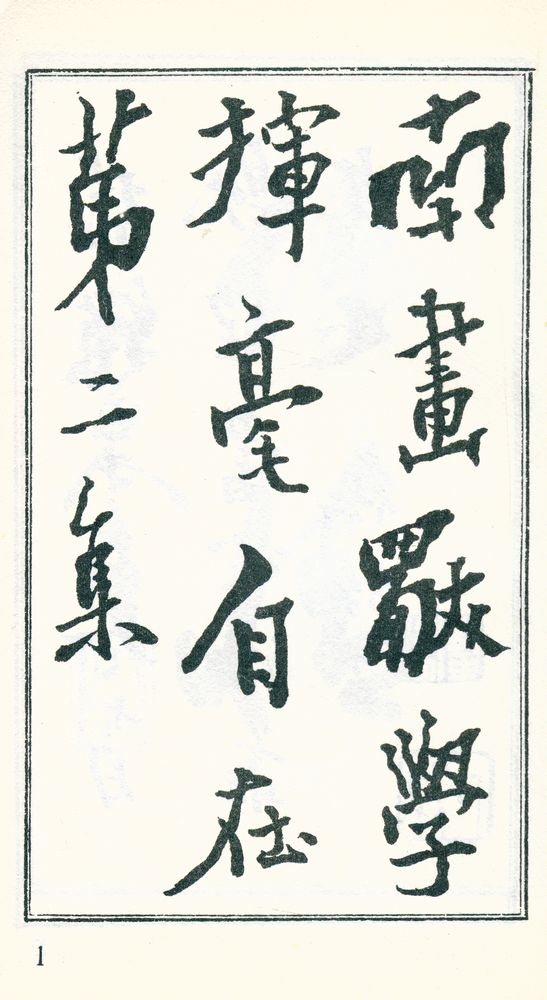 南畫獨學
揮毫自在
第二集
1